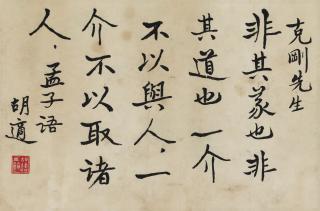 克剛先生
非其義也非
其道也一介
不以與人，一
介不以取諸
人，孟子語
胡適